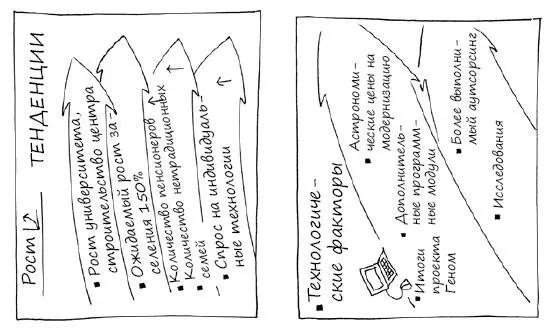 Рост
ТЕНДЕНЦИИ
▪ Рост университета,
строительство центра
▪ Ожидаемый рост за-
селения 150%
▪ Количество пенсионеров ↑
▪ Количество нетрадиционных
семей ↑
▪ Спрос на индивидуаль-
ные технологии ↑
▪ Технологиче-
ские факторы
▪ Астрономи-
ческие цены на
модернизацию
▪ Дополнитель-
ные программ-
ные модули
▪ Более выполни-
мый аутсорсинг
▪ Итоги
проекта
Геном
▪ Исследования